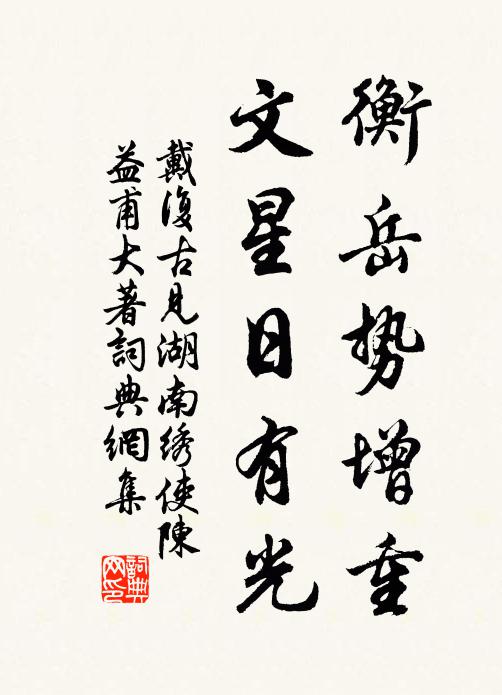 衡岳势增重
文星日有光
戴復古見湖南绣使陳
益甫大著詞典網集
詞典网印